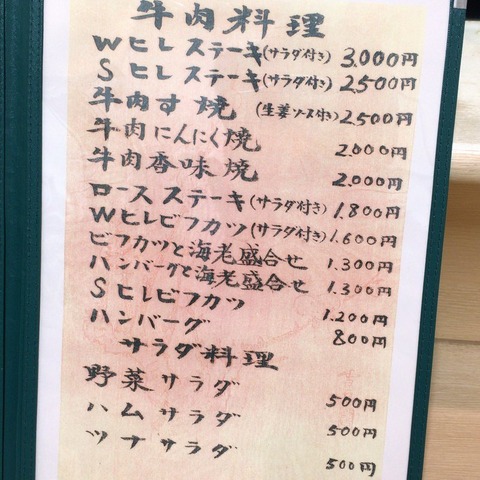 牛肉料理
Wヒレステーキ(サラダ付き) 3,000円
Sヒレステーキ(サラダ付き) 2500円
牛肉す焼 (生姜ソース付) 2,500円
牛肉にんにく焼 2,000円
牛肉香味焼 2,000円
ロースステーキ(サラダ付き) 1,800円
Wヒレビフカツ(サラダ付き) 1,600円
ビフカツと海老盛合せ 1,300円
ハンバーグと海老盛合せ 1,300円
Sヒレビフカツ 1,200円
ハンバーグ 800円
サラダ料理
野菜サラダ 500円
ハムサラダ 500円
ツナサラダ 500円